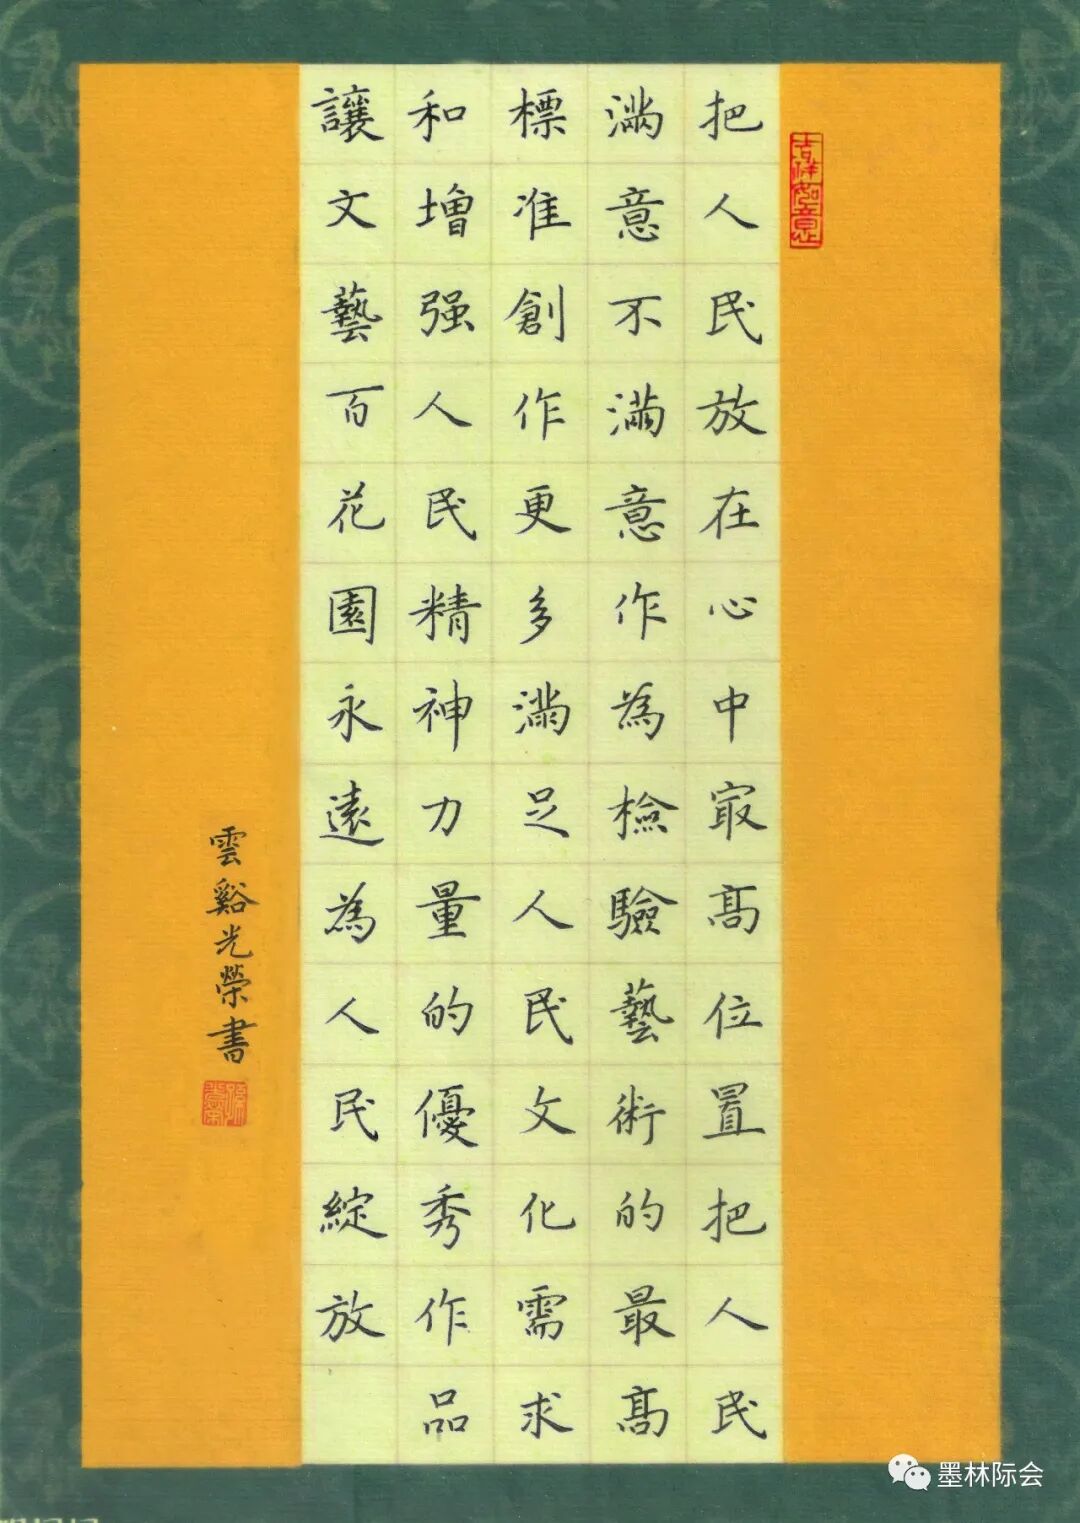 把人民放在心中冣高位置把人民
滿意不滿意作為檢驗藝術的最高
標准創作更多滿足人民文化需求
和增强人民精神力量的優秀作品
讓文藝百花園永遠為人民綻放
雲谿光榮書
吉祥如意
墨林际会